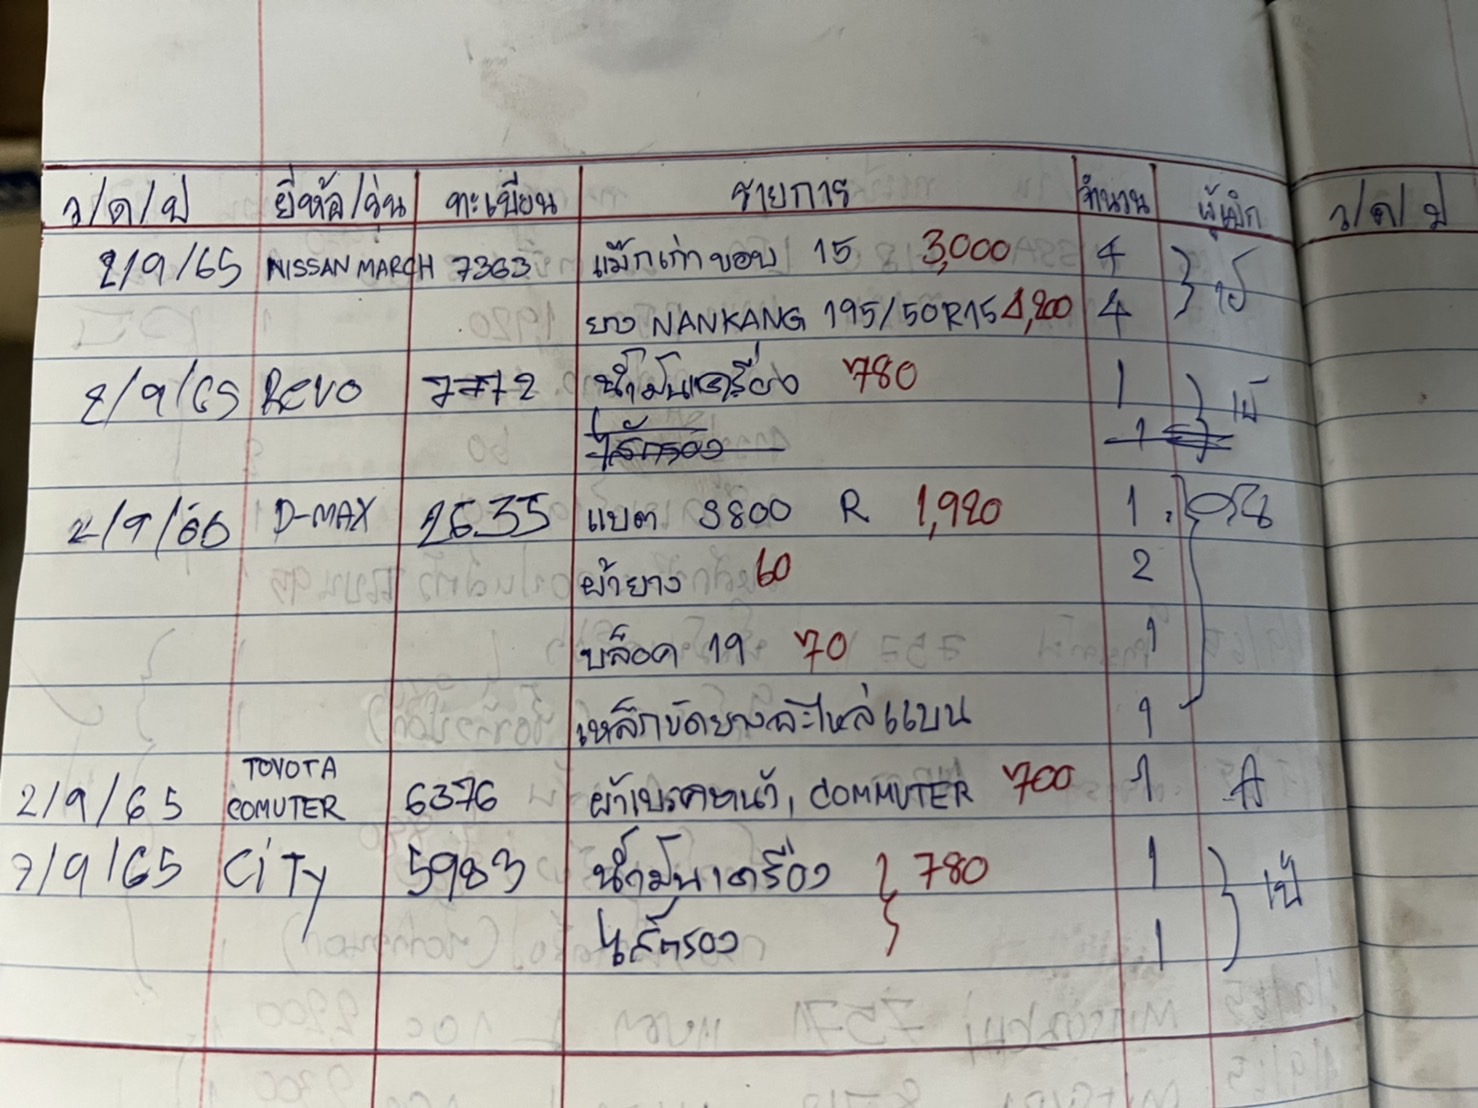 ว/ด/ป ยี่ห้อ/รุ่น ทะเบียน รายการ จำนวน ผู้เบิก ว/ด/ป
2/9/65 NISSAN MARCH 7363 แม๊กเก่าขอบ 15 3,000 4
ยาง NANKANG 195/50R15 4
2/9/65 REVO 7772 น้ำมันเครื่อง 780 1
ไส้กรอง 1
2/9/66 D-MAX 2635 แบต 3800 R 1,920 1
ผ้ายาง 60 2
บล็อค 19 70 1
เหล็กขัดยางอะไหล่แบน 1
2/9/65 TOYOTA COMUTER 6376 ผ้าเบรคหน้า, COMMUTER 700 1 A
2/9/65 CiTy 5983 น้ำมันเครื่อง 780 1 เป้
ไส้กรอง 1